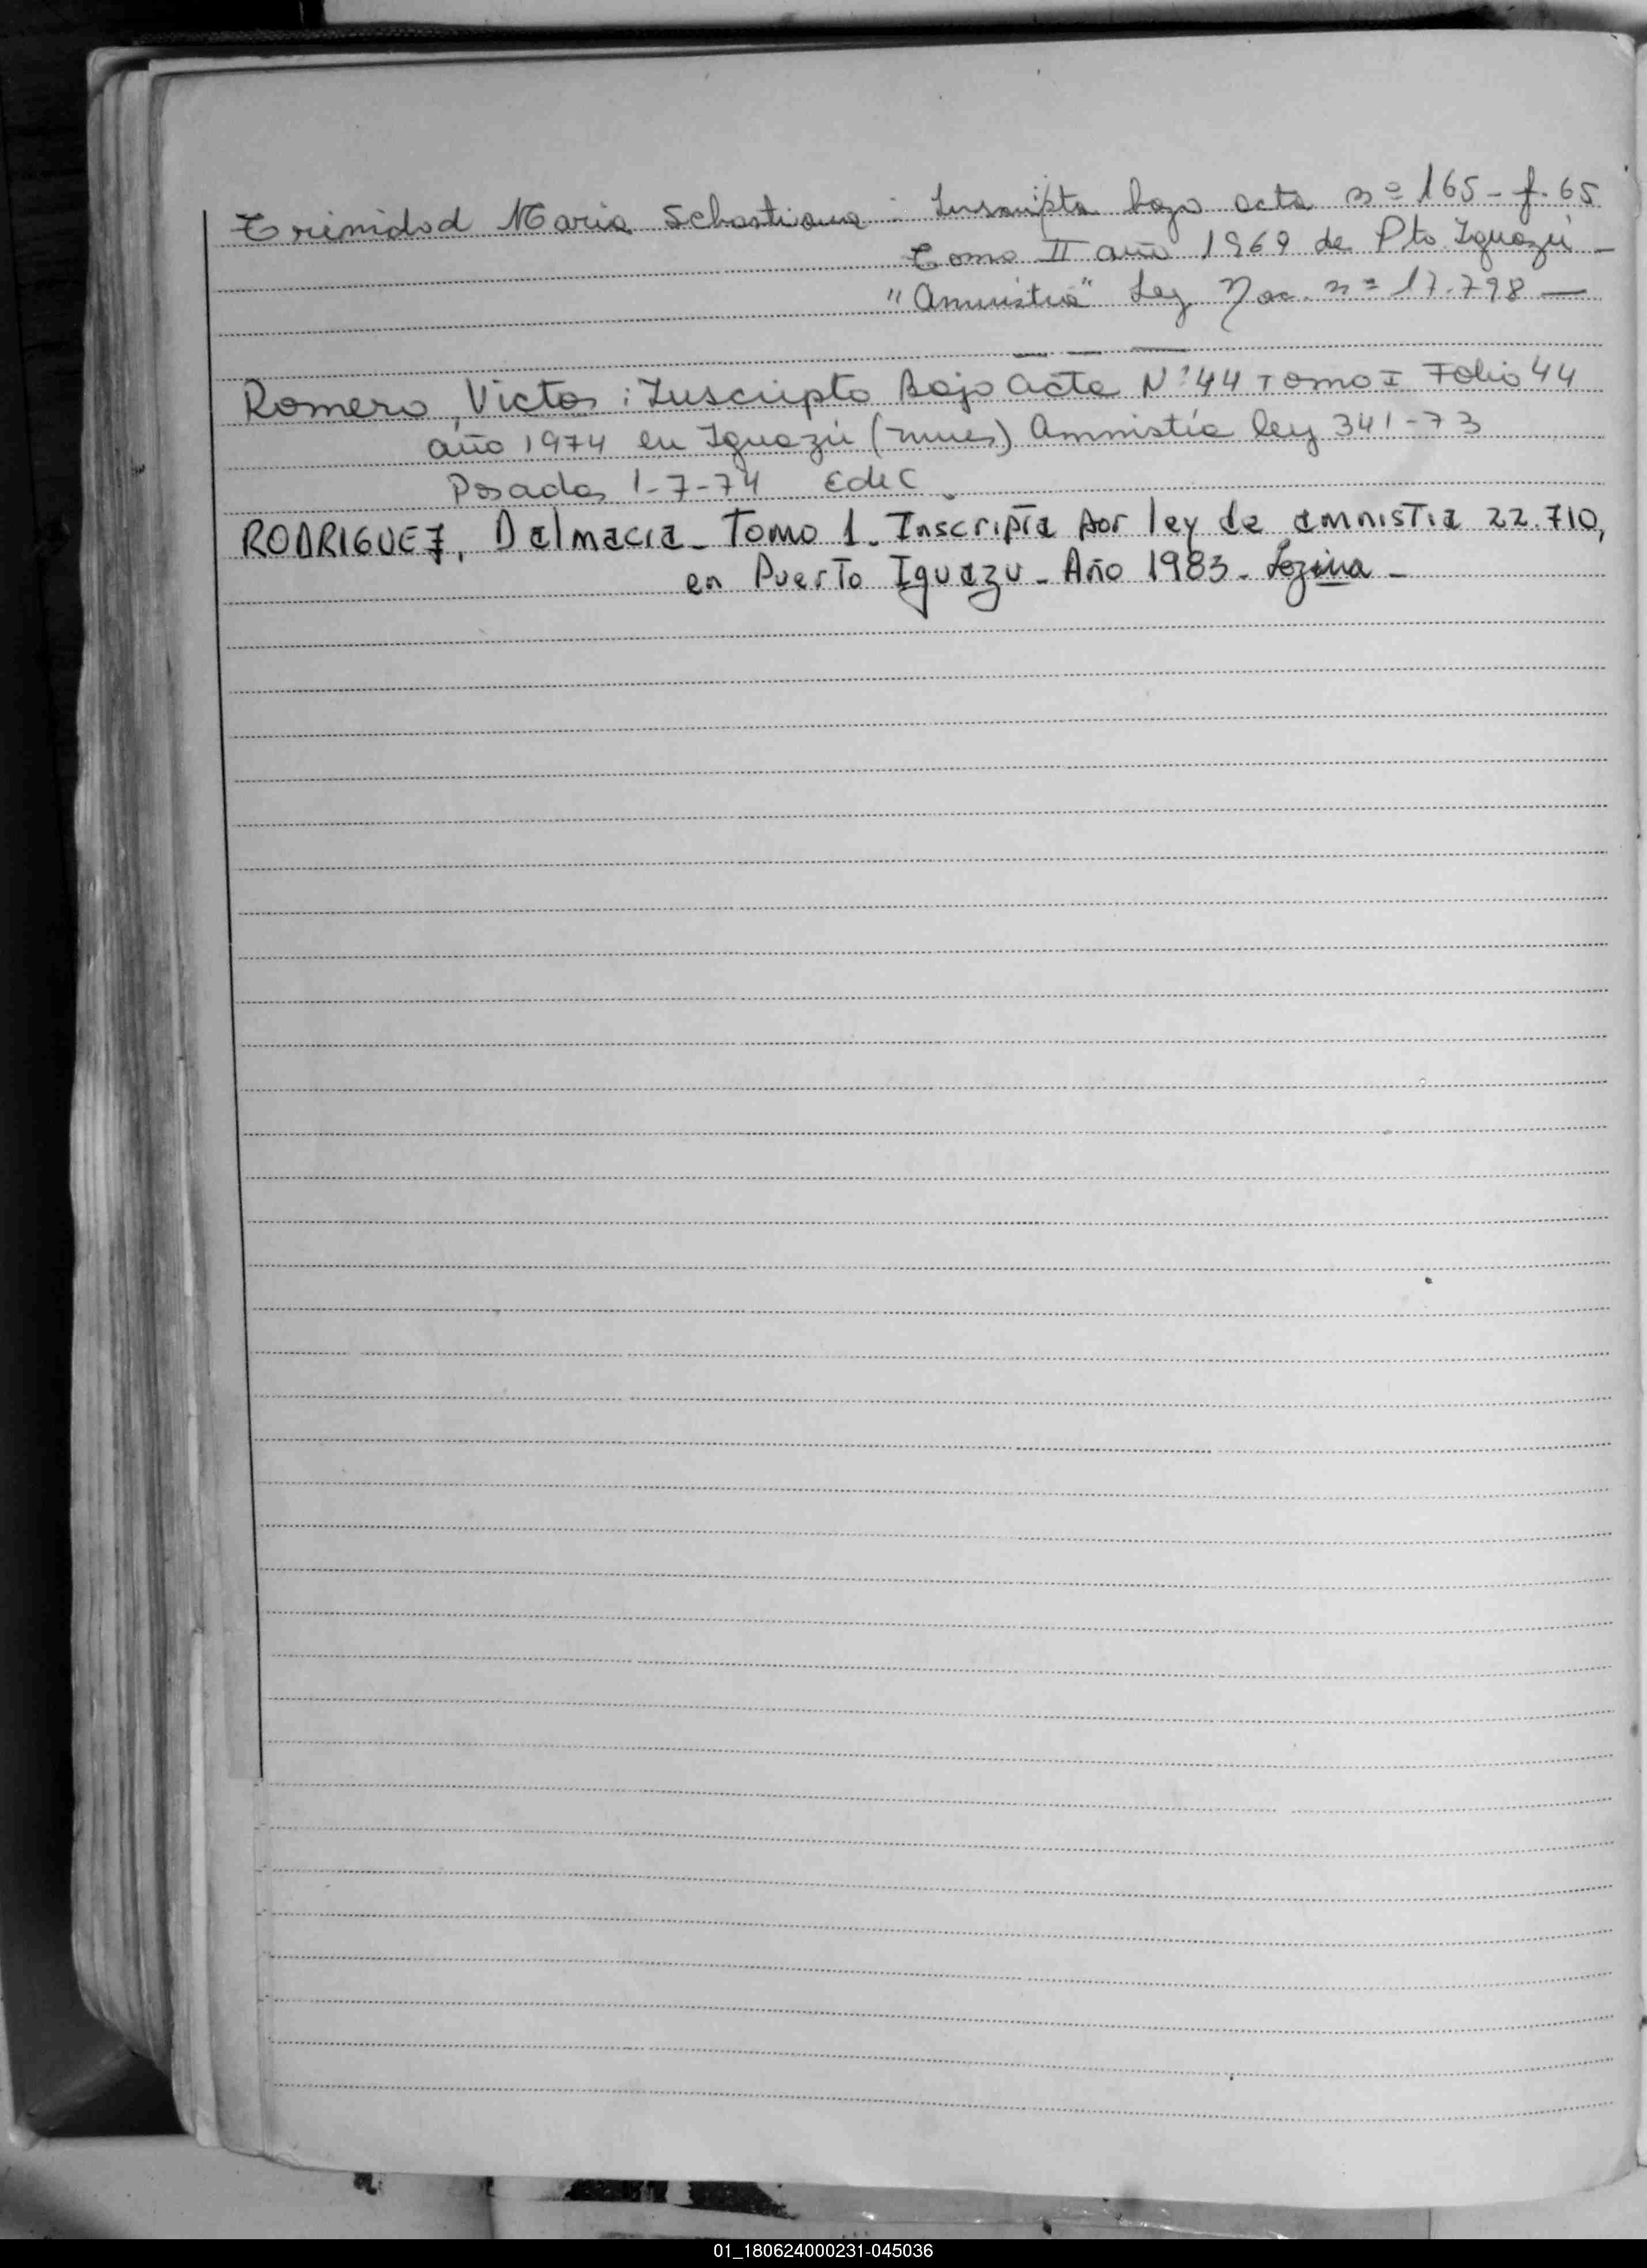 Trinidad Maria Sebastiana - Inscripta bajo acta nº 165 - f. 65
Tomo II año 1969 de Pto Iguazú -
"Amnistia" Ley Nac. nº 17.798 —
Romero, Victor : Inscripto Bajo acta Nº 44 Tomo I Folio 44
año 1974 en Iguazú (mnes) Amnistía ley 341-73
Posadas 1-7-74 EdeC
RODRIGUEZ, Dalmacia - Tomo 1 - Inscripta por ley de amnistia 22.710,
en Puerto Iguazu - Año 1983 - Lezina -
01_180624000231-045036